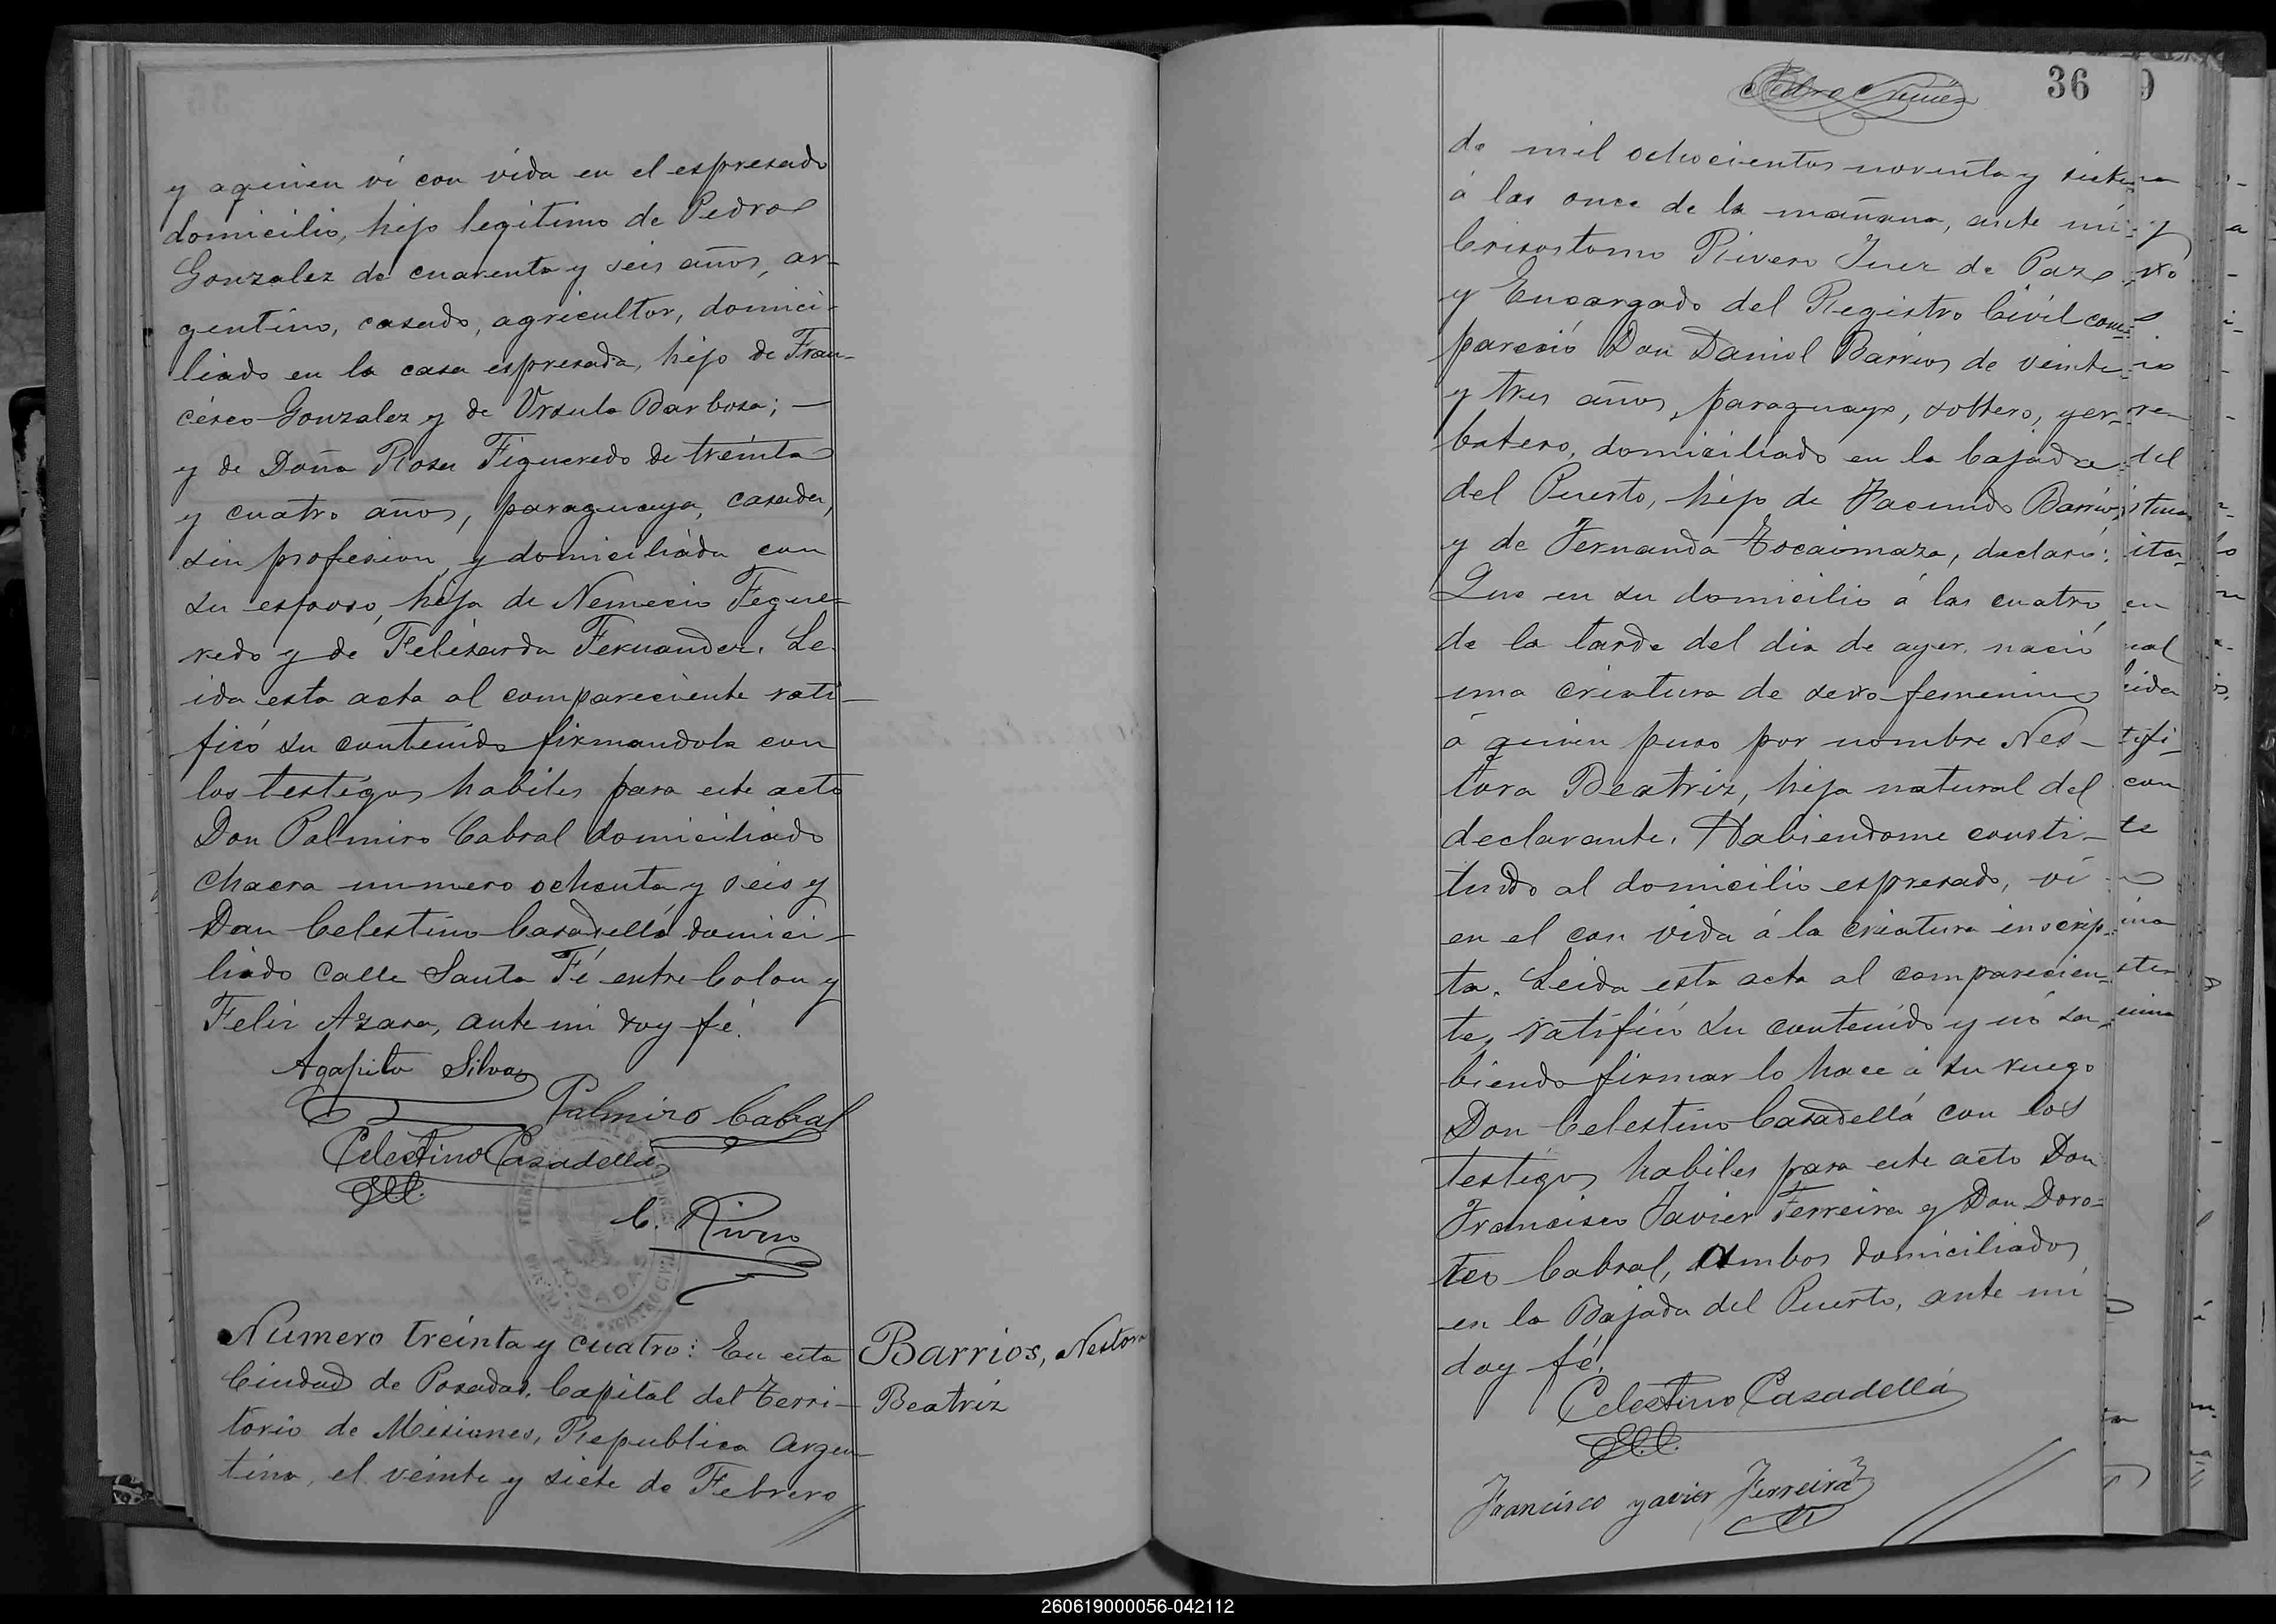 y aquien ví con vida en el espresado
domicilio, hijo legitimo de Pedro
Gonzalez de cuarenta y seis años, ar-
gentino, casado, agricultor, domici-
liado en la casa espresada, hijo de Fran-
cisco Gonzalez y de Ursula Barbosa; —
y de Doña Rosa Figueredo de treinta
y cuatro años, paraguaya, casada,
sin profesion, y domiciliada con
su esposo, hija de Nemecio Figue-
redo y de Felisarda Fernandez. Le-
ida esta acta al compareciente rati-
ficó su contenido firmandola con
los testigos habiles para este acto
Don Palmiro Cabral domiciliado
Chacra numero ochenta y seis y
Don Celestino Casadellá domici-
liado Calle Santa Fé entre Colon y
Felix Azara, ante mi doy fé.
Agapito Silva
Palmiro Cabral
Celestino Casadellá
C. Rivero
POSADAS
REGISTRO CIVIL
Numero treinta y cuatro: En esta
Ciudad de Posadas, Capital del Terri-
torio de Misiones, Republica Argen-
tina, el veinte y siete de Febrero
Barrios, Nestora
Beatriz
Pedro Nuñez
36
de mil ochocientos noventa y siete
á las once de la mañana, ante mí
Crisostomo Rivero Juez de Paz
y Encargado del Registro Civil com-
pareció Don Daniel Barrios de veinte
y tres años, paraguayo, soltero, yer-
batero, domiciliado en la bajada
del Puerto, hijo de Facundo Barrios
y de Fernanda Tocaimaza, declaró:
Que en su domicilio á las cuatro
de la tarde del dia de ayer, nació
una criatura de sexo femenino
á quien puso por nombre Nes-
tora Beatriz, hija natural del
declarante. Habiendome consti-
tuido al domicilio espresado, ví
en el con vida á la criatura inscrip-
ta. Leida esta acta al comparecien-
te, ratificó su contenido y nó sa-
biendo firmar lo hace á su ruego
Don Celestino Casadellá con los
testigos habiles para este acto Don
Francisco Javier Ferreira y Don Doro=
teo Cabral, Ambos domiciliados
en la Bajada del Puerto, ante mí
doy fé.
Celestino Casadellá
Francisco yavier Ferreira
260619000056-042112